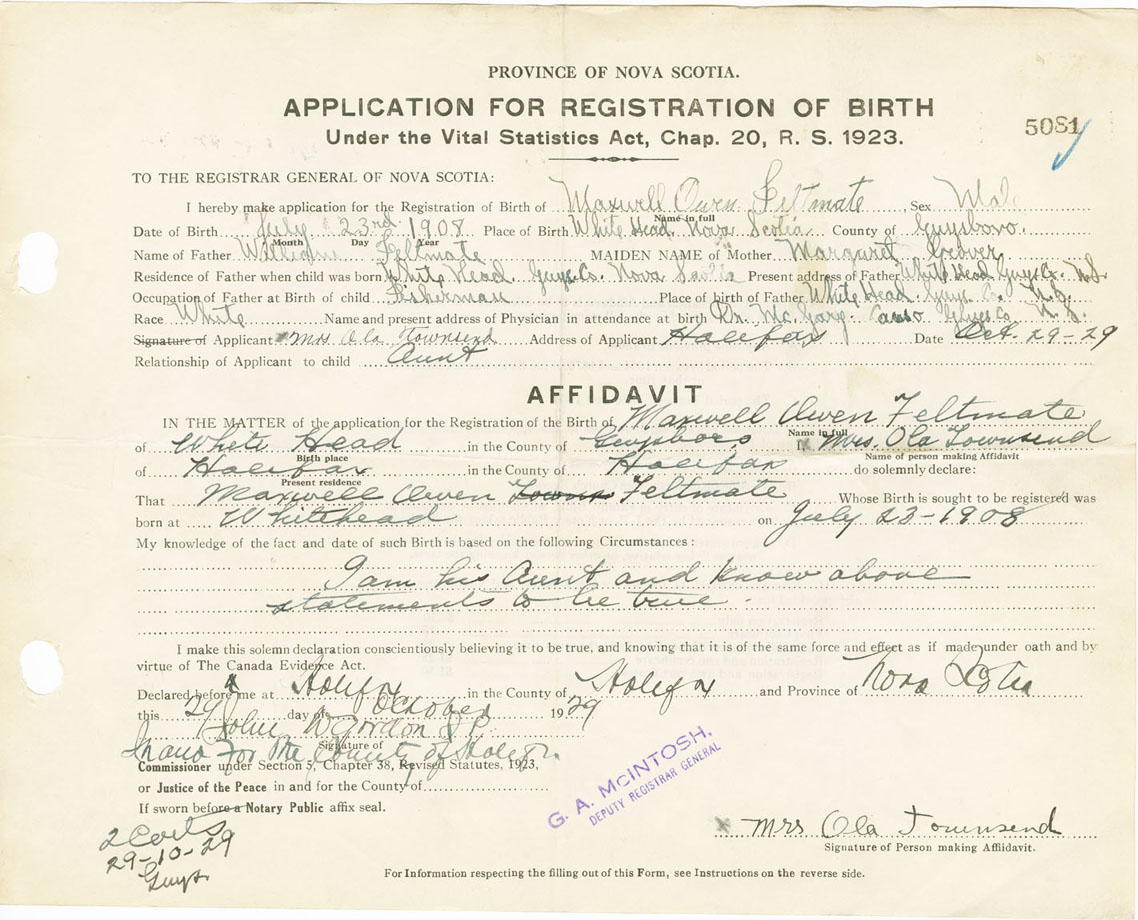 PROVINCE OF NOVA SCOTIA.
APPLICATION FOR REGISTRATION OF BIRTH
5081
Under the Vital Statistics Act, Chap. 20, R. S. 1923.
TO THE REGISTRAR GENERAL OF NOVA SCOTIA:
I hereby make application for the Registration of Birth of Maxwell Owen Feltmate Sex Male
Name in full
Date of Birth July 23rd 1908 Place of Birth White Head Nova Scotia County of Guysboro.
Month Day Year
Name of Father William Feltmate MAIDEN NAME of Mother Margaret
Residence of Father when child was born White Head Guys. Co. Nova Scotia Present address of Father White Head Guys Co. N.S.
Occupation of Father at Birth of child Fisherman Place of birth of Father White Head Guys. Co. N.S.
Race White Name and present address of Physician in attendance at birth Dr. Canso Guys Co. N.S.
Signature of Applicant Mrs Ola Townsend Address of Applicant Halifax Date Oct. 29-29
Relationship of Applicant to child Aunt
AFFIDAVIT
IN THE MATTER of the application for the Registration of the Birth of Maxwell Owen Feltmate
Name in full
of White Head in the County of Guysboro I, Mrs. Ola Townsend
Birth place Name of person making Affidavit
of Halifax in the County of Halifax do solemnly declare:
Present residence
That Maxwell Owen Towns Feltmate Whose Birth is sought to be registered was
born at Whitehead on July 23-1908
My knowledge of the fact and date of such Birth is based on the following Circumstances:
I am his Aunt and know above
statements to be true.
I make this solemn declaration conscientiously believing it to be true, and knowing that it is of the same force and effect as if made under oath and by
virtue of The Canada Evidence Act.
Declared before me at Halifax in the County of Halifax and Province of Nova Scotia
this 29 day of October 1929
John W Gordon J.P.
Signature of
In and For the County of Halifax.
Commissioner under Section 5, Chapter 38, Revised Statutes, 1923,
or Justice of the Peace in and for the County of
If sworn before a Notary Public affix seal.
G. A. McINTOSH,
DEPUTY REGISTRAR GENERAL
2
29-10-29
Guys.
x Mrs Ola Townsend
Signature of Person making Affidavit.
For Information respecting the filling out of this Form, see Instructions on the reverse side.